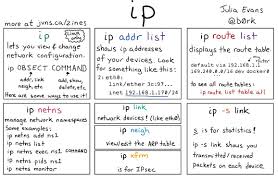 ip
Julia Evans
@b0rk
more at jvns.ca/zines
ip
lets you view & change
network configuration.
ip OBJECT COMMAND
addr, link,
neigh, etc
add, show,
delete, etc
Here are some ways to use it!
ip addr list
shows ip addresses
of your devices. Look
for something like this:
2: eth0:
link/ether 3c:97...
inet 192.168.1.170/24
ip route list
displays the route table
default via 192.168.1.1
169.240.0.0/16 dev docker0
to see all route tables:
ip netns
manage network namespaces
Some examples:
ip netns add ns1
ip netns list
ip netns exec ns1 COMMAND
ip netns pids ns1
ip netns monitor
ip link
network devices! (like eth0)
ip neigh
view/edit the ARP table
ip xfrm
is for IPsec
ip -s link
s is for statistics!
ip -s link shows you
transmitted/received
packets on each device.